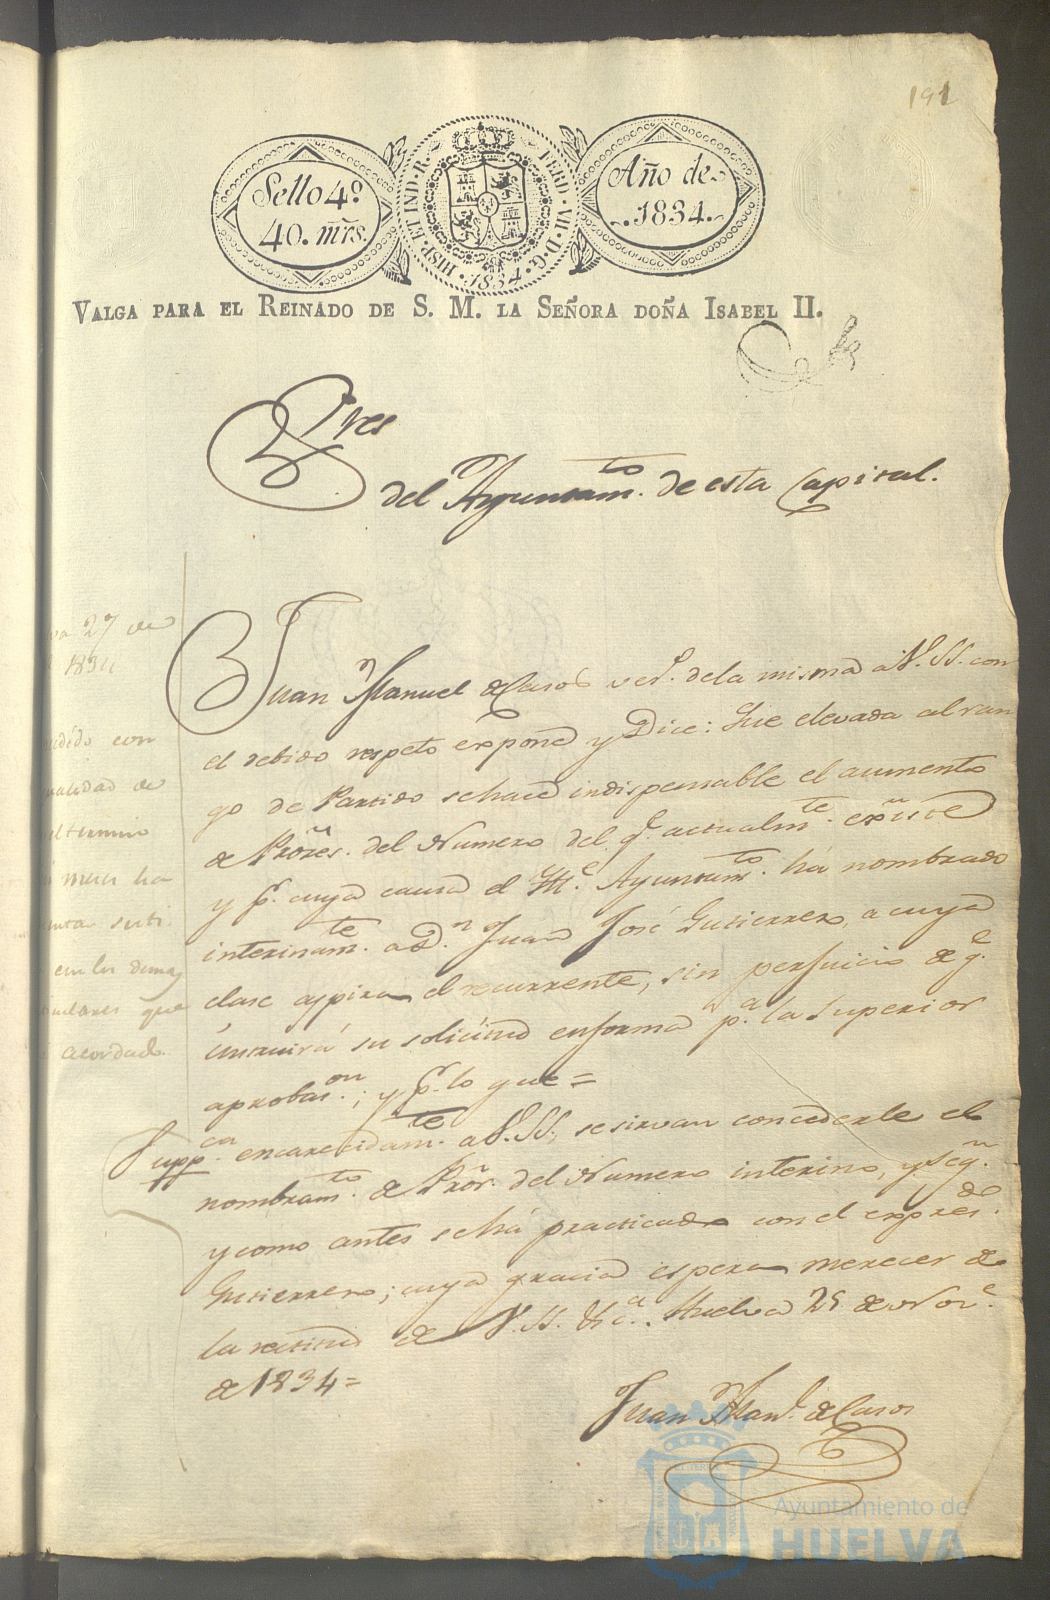 191
Sello 4º
40. mrs.
HISP. ET IND. R.
FERD. VII. D. G.
1834.
Año de
1834.
VALGA PARA EL REINADO DE S. M. LA SEÑORA DOÑA ISABEL II.
Sres
del Ayuntamto. de esta Capital.
27 de
1834
con
de
termino
ha
en los demas
que
acordado
Juan Manuel de Casos vec.o de la misma a V. SS. con
el debido respeto expone y Dice: Que elevada al ran
go de Partido se hace indispensable el aumento
de Prores. del Numero del q.e actualmte. existe
y p.r cuya causa el Ille. Ayuntamto. há nombrado
interinamte. a D.n Juan José Gutierrez, a cuya
clase aspira el recurrente, sin perjuicio de q.e
instruirá su solicitud en forma p.a la Superior
aprobas.on; y p.r lo que =
Supp.ca encarecidamte. a V. SS. se sirvan concederle el
nombramto. de Pror. del Numero interino, y seg.n
y como antes se há practicado con el expresdo.
Gutierrez; cuya gracia espera merecer de
la rectitud de V. SS. Huelva 25 de Nove.
de 1834 =
Juan Manl. de Casos
Ayuntamiento de
HUELVA